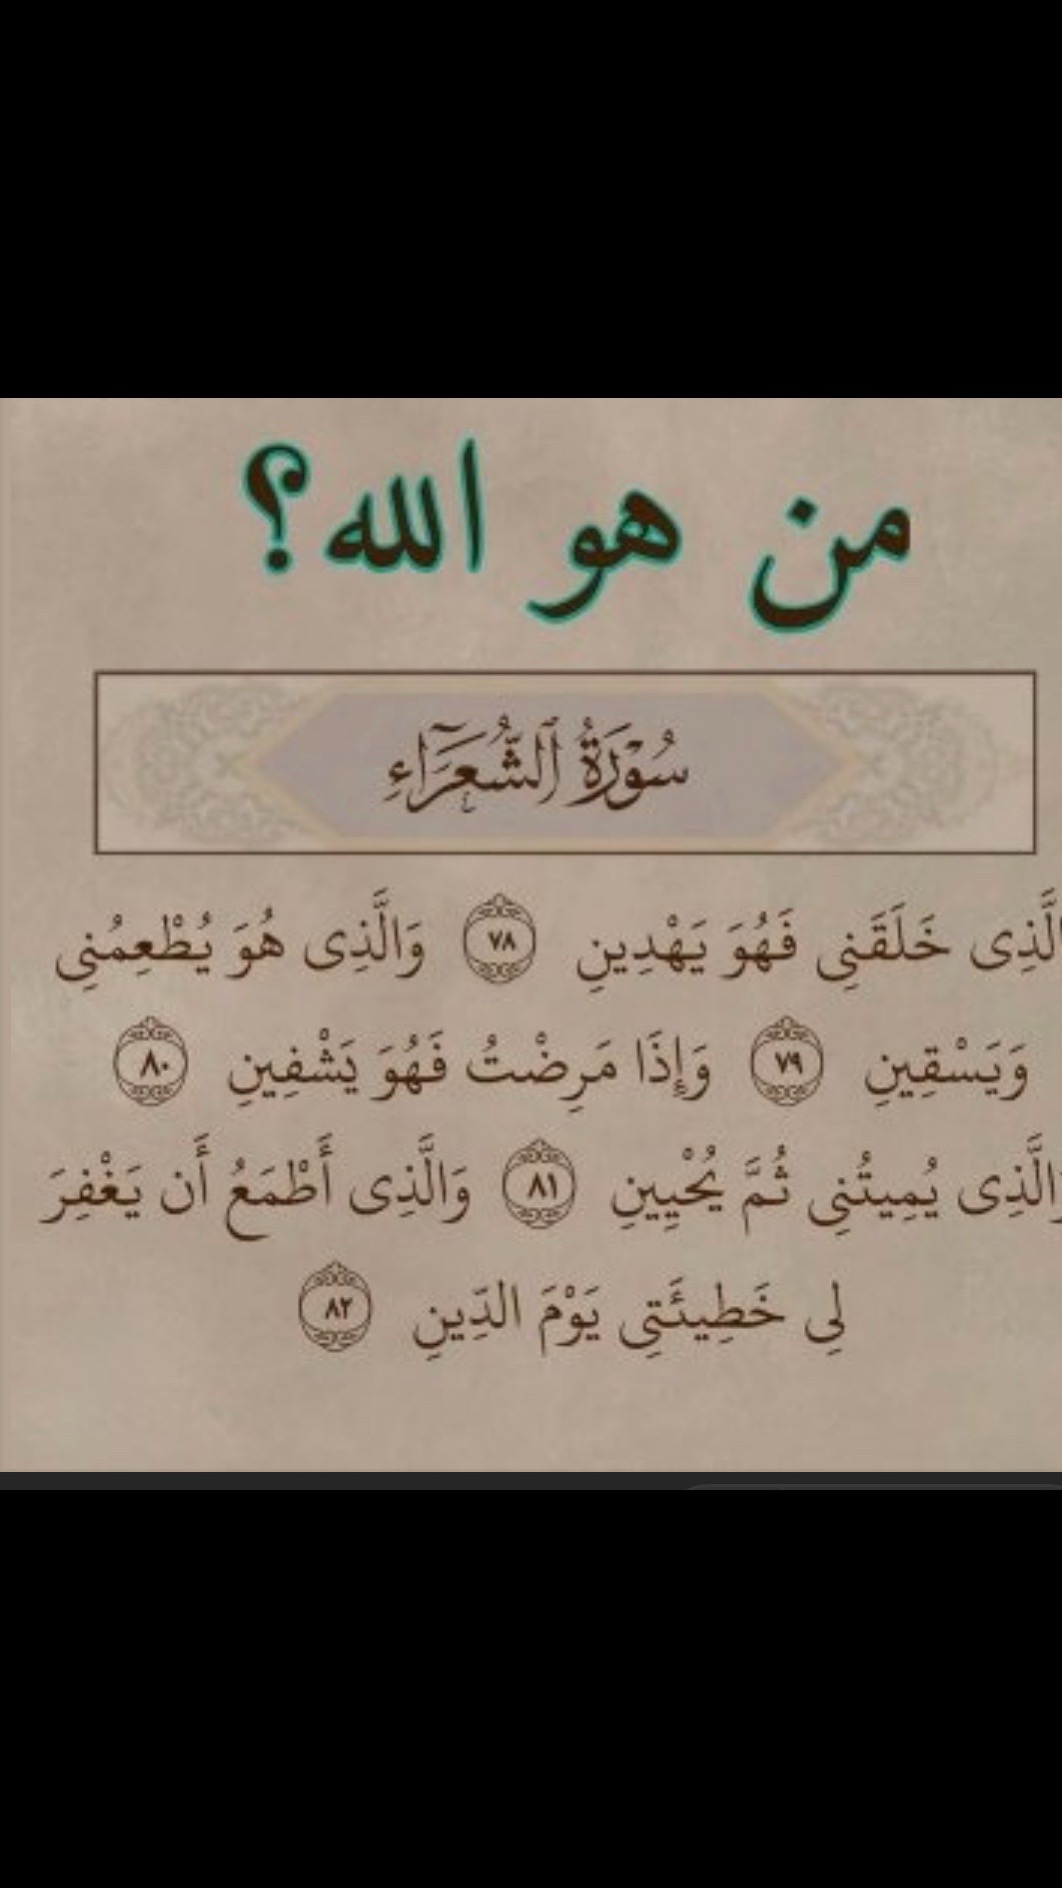 من هو الله؟
سُورَةُ ٱلشُّعَرَاءِ
لَّذِى خَلَقَنِى فَهُوَ يَهْدِينِ ٧٨ وَالَّذِى هُوَ يُطْعِمُنِى
وَيَسْقِينِ ٧٩ وَإِذَا مَرِضْتُ فَهُوَ يَشْفِينِ ٨٠
وَالَّذِى يُمِيتُنِى ثُمَّ يُحْيِينِ ٨١ وَالَّذِى أَطْمَعُ أَن يَغْفِرَ
لِى خَطِيئَتِى يَوْمَ الدِّينِ ٨٢